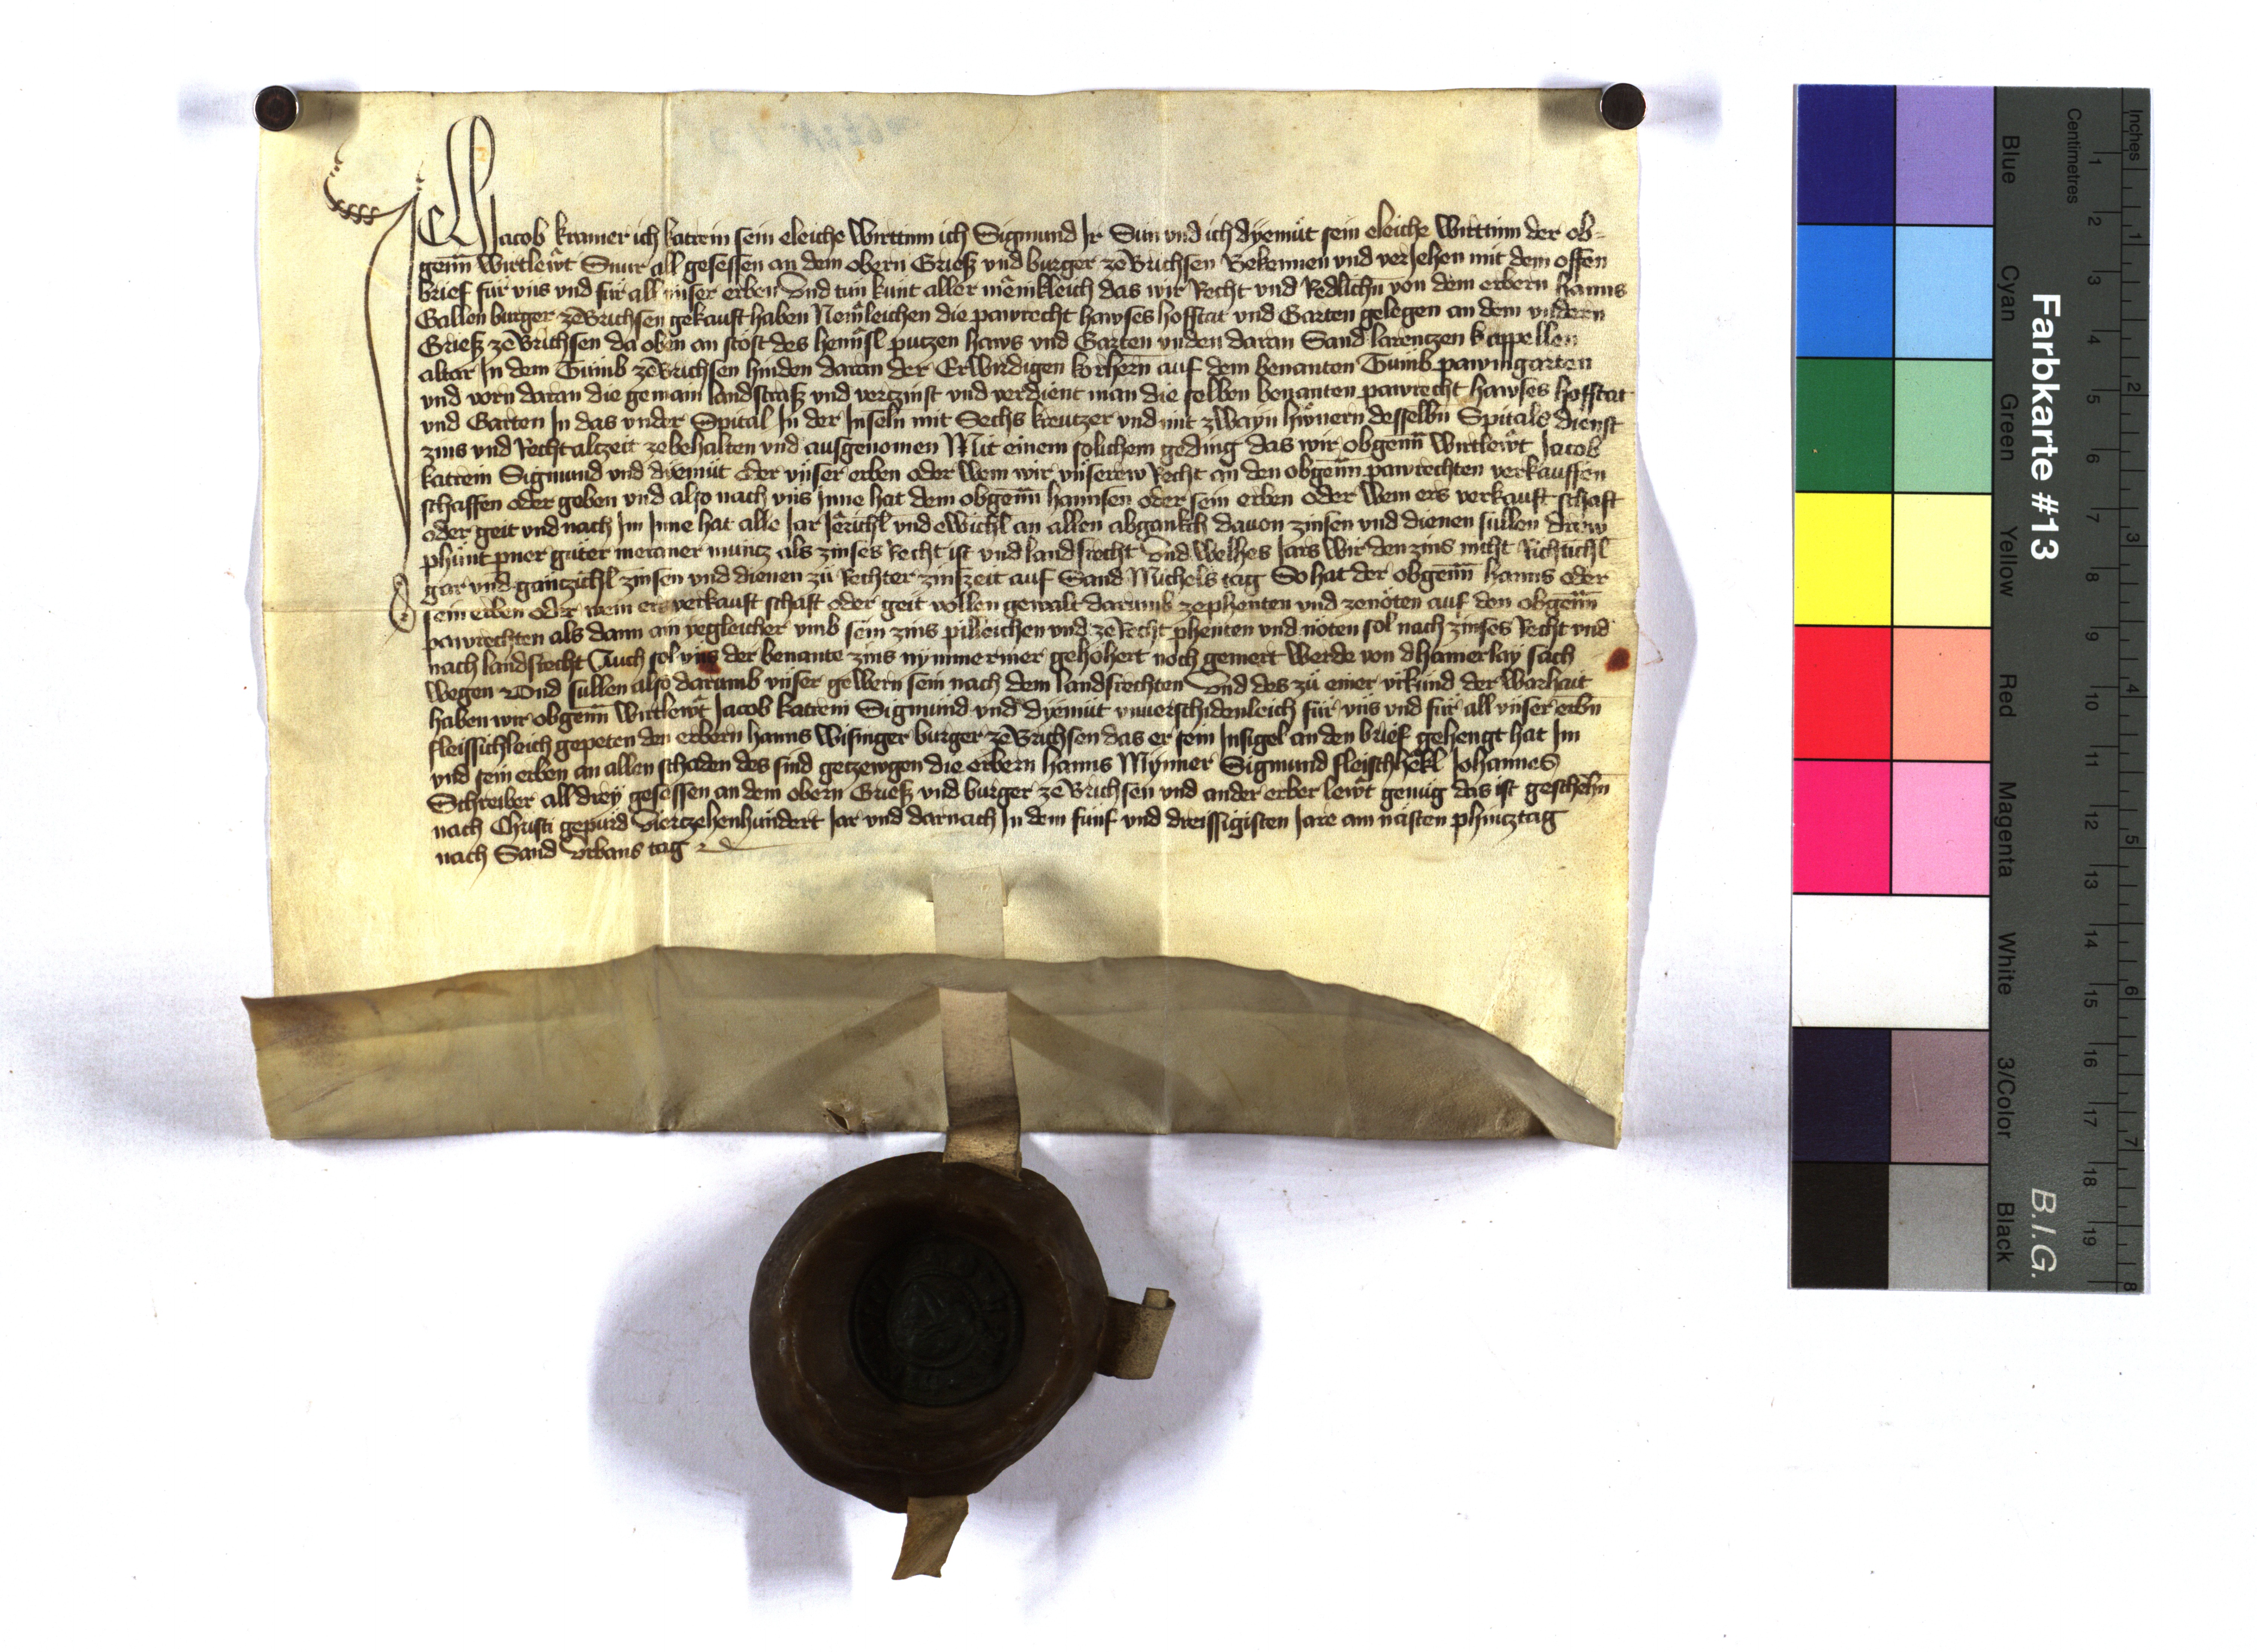 Ich Jacob kramer ich katrein sein eleiche wirttinn ich Sigmund Ir Sun vnd ich dyemut sein eleiche wirttinn der ob-
genn wirtlewt Snur all gesessen an dem obern Griesz vnd burger ze Brichsen Bekennen vnd veriehen mit dem offen
brief fur vns vnd fur all vnser erben Vnd tun kunt aller menikleich das wir Recht vnd Redlichn von dem erbern hanns
Gallen burger ze Brichsen gekauft haben Nemleichen die pawrecht hawses hofstat vnd Garten gelegen an dem vndern
Griesz ze Brichsen da oben an stost des hennsl putzen haws vnd Garten vnden daran Sand larentzen kappellen
altar In dem Tumb ze Brichsen hinden daran der Erwirdigen korhern auf dem benanten Tumb pawmgarten
vnd vorn daran die gemain landstrasz vnd vertzinst vnd verdient man die selben benanten pawrecht hawses hofstat
vnd Garten In das vnder Spital In der Inseln mit Sechs kreutzer vnd mit zwayn hwnern desselbn Spitals dienst
zins vnd Recht altzeit ze behalten vnd ausgenomen Mit einem solichem geding das wir obgenn wirtlewt Jacob
katrein Sigmund vnd dyemut oder vnser erben oder wem wir vnserew Recht an den obgenn pawrechten verkauffen
schaffen oder geben vnd also nach vns Inne hat dem obgenn hannsen oder sein erben oder wem ers verkauft schaft
oder geit vnd nach Im Inne hat alle Jar Jerichl vnd ewichl an allen abgankch dauon zinsen vnd dienen sullen drew
phunt pner guter meraner muntz als zinses Recht ist vnd landsrecht Vnd welhes Jars wir den zins nicht Richtichl
gar vnd gantzichl zinsen vnd dienen zu Rechter zinszeit auf Sand Michels tag So hat der obgenn hanns oder
sein erben oder wem ers verkauft schaft oder geit vollen gewalt darumb ze phenten vnd ze noten auf den obgenn
pawrechten als dann ain yegleicher vmb sein zins pilleichen vnd ze Recht phenten vnd noten sol nach zinses Recht vnd
nach landsrecht Auch sol vns der benante zins nymmermer gehohert noch gemert werde von dhainerlay sach
wegen Vnd sullen also darumb vnser gewern sein nach dem landsrechten Vnd des zu einer vrkund der warhait
haben wir obgenn wirtlewt Jacob katrein Sigmund vnd dyemut vnuerschidenleich fur vns vnd fur all vnser erbn
fleissichleich gepeten den erbern hanns wisinger burger ze Brichsen das er sein Insigel an den brief gehengt hat Im
vnd sein erben an allen schaden des sind getzewgen die erbern hanns Mynner Sigmund fleischhekl Johannes
Schreiber all drey gesessen an dem obern Griesz vnd burger ze Brichsen vnd ander erber lewt genug das ist geschehn
nach Christi gepurd Viertzehenhundert Jar vnd darnach In dem funf vnd dreissigisten Jare am nasten phintztag
nach Sand Vrbans tag
Farbkarte #13
B.I.G.
Blue Cyan Green Yellow Red Magenta White 3/Color Black
Centimetres 1 2 3 4 5 6 7 8 9 10 11 12 13 14 15 16 17 18 19
Inches 1 2 3 4 5 6 7 8